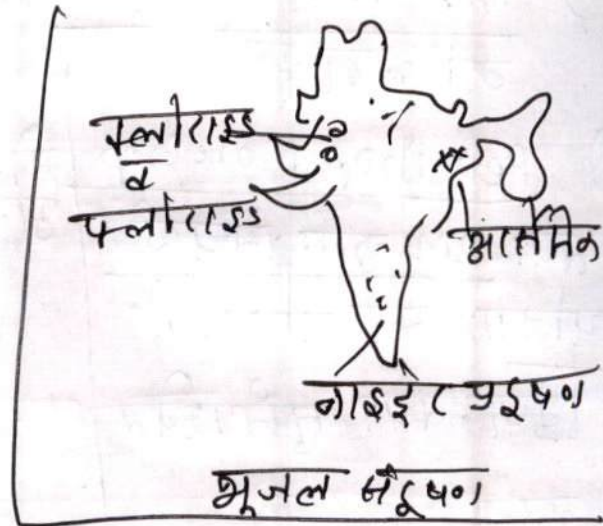 क्लोराइड
व
फ्लोराइड
आर्सेनिक
नाइट्रेट प्रदूषण
भूजल संदूषण